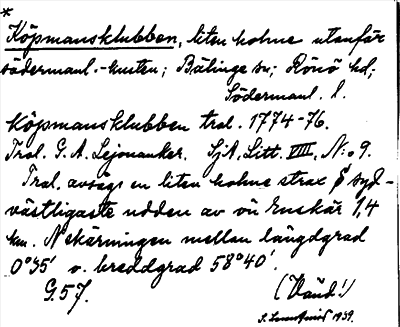 *
Köpmansklubben, liten holme utanför
södermanl.-kusten; Bälinge sn; Rönö hd;
Södermanl. l.
Köpmansklubben tral. 1774-76.
Tral. G. A. Lejonanker. SjA, Litt. VIII, N:o 9.
Tral. avsågs en liten holme strax § syd-
västligaste udden av ön Enskär 1,4
km. N skärningen mellan längdgrad
0°35' o. breddgrad 58°40'.
G.57. (Vänd!)
1939.